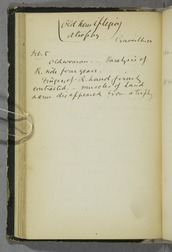 Old hemiplegia
atrophy
Feb. 5
Old woman – Paralysis of
R. side four years.
Fingers of R. hand firmly
contracted – muscles of hand
& arm disappeared from atrophy